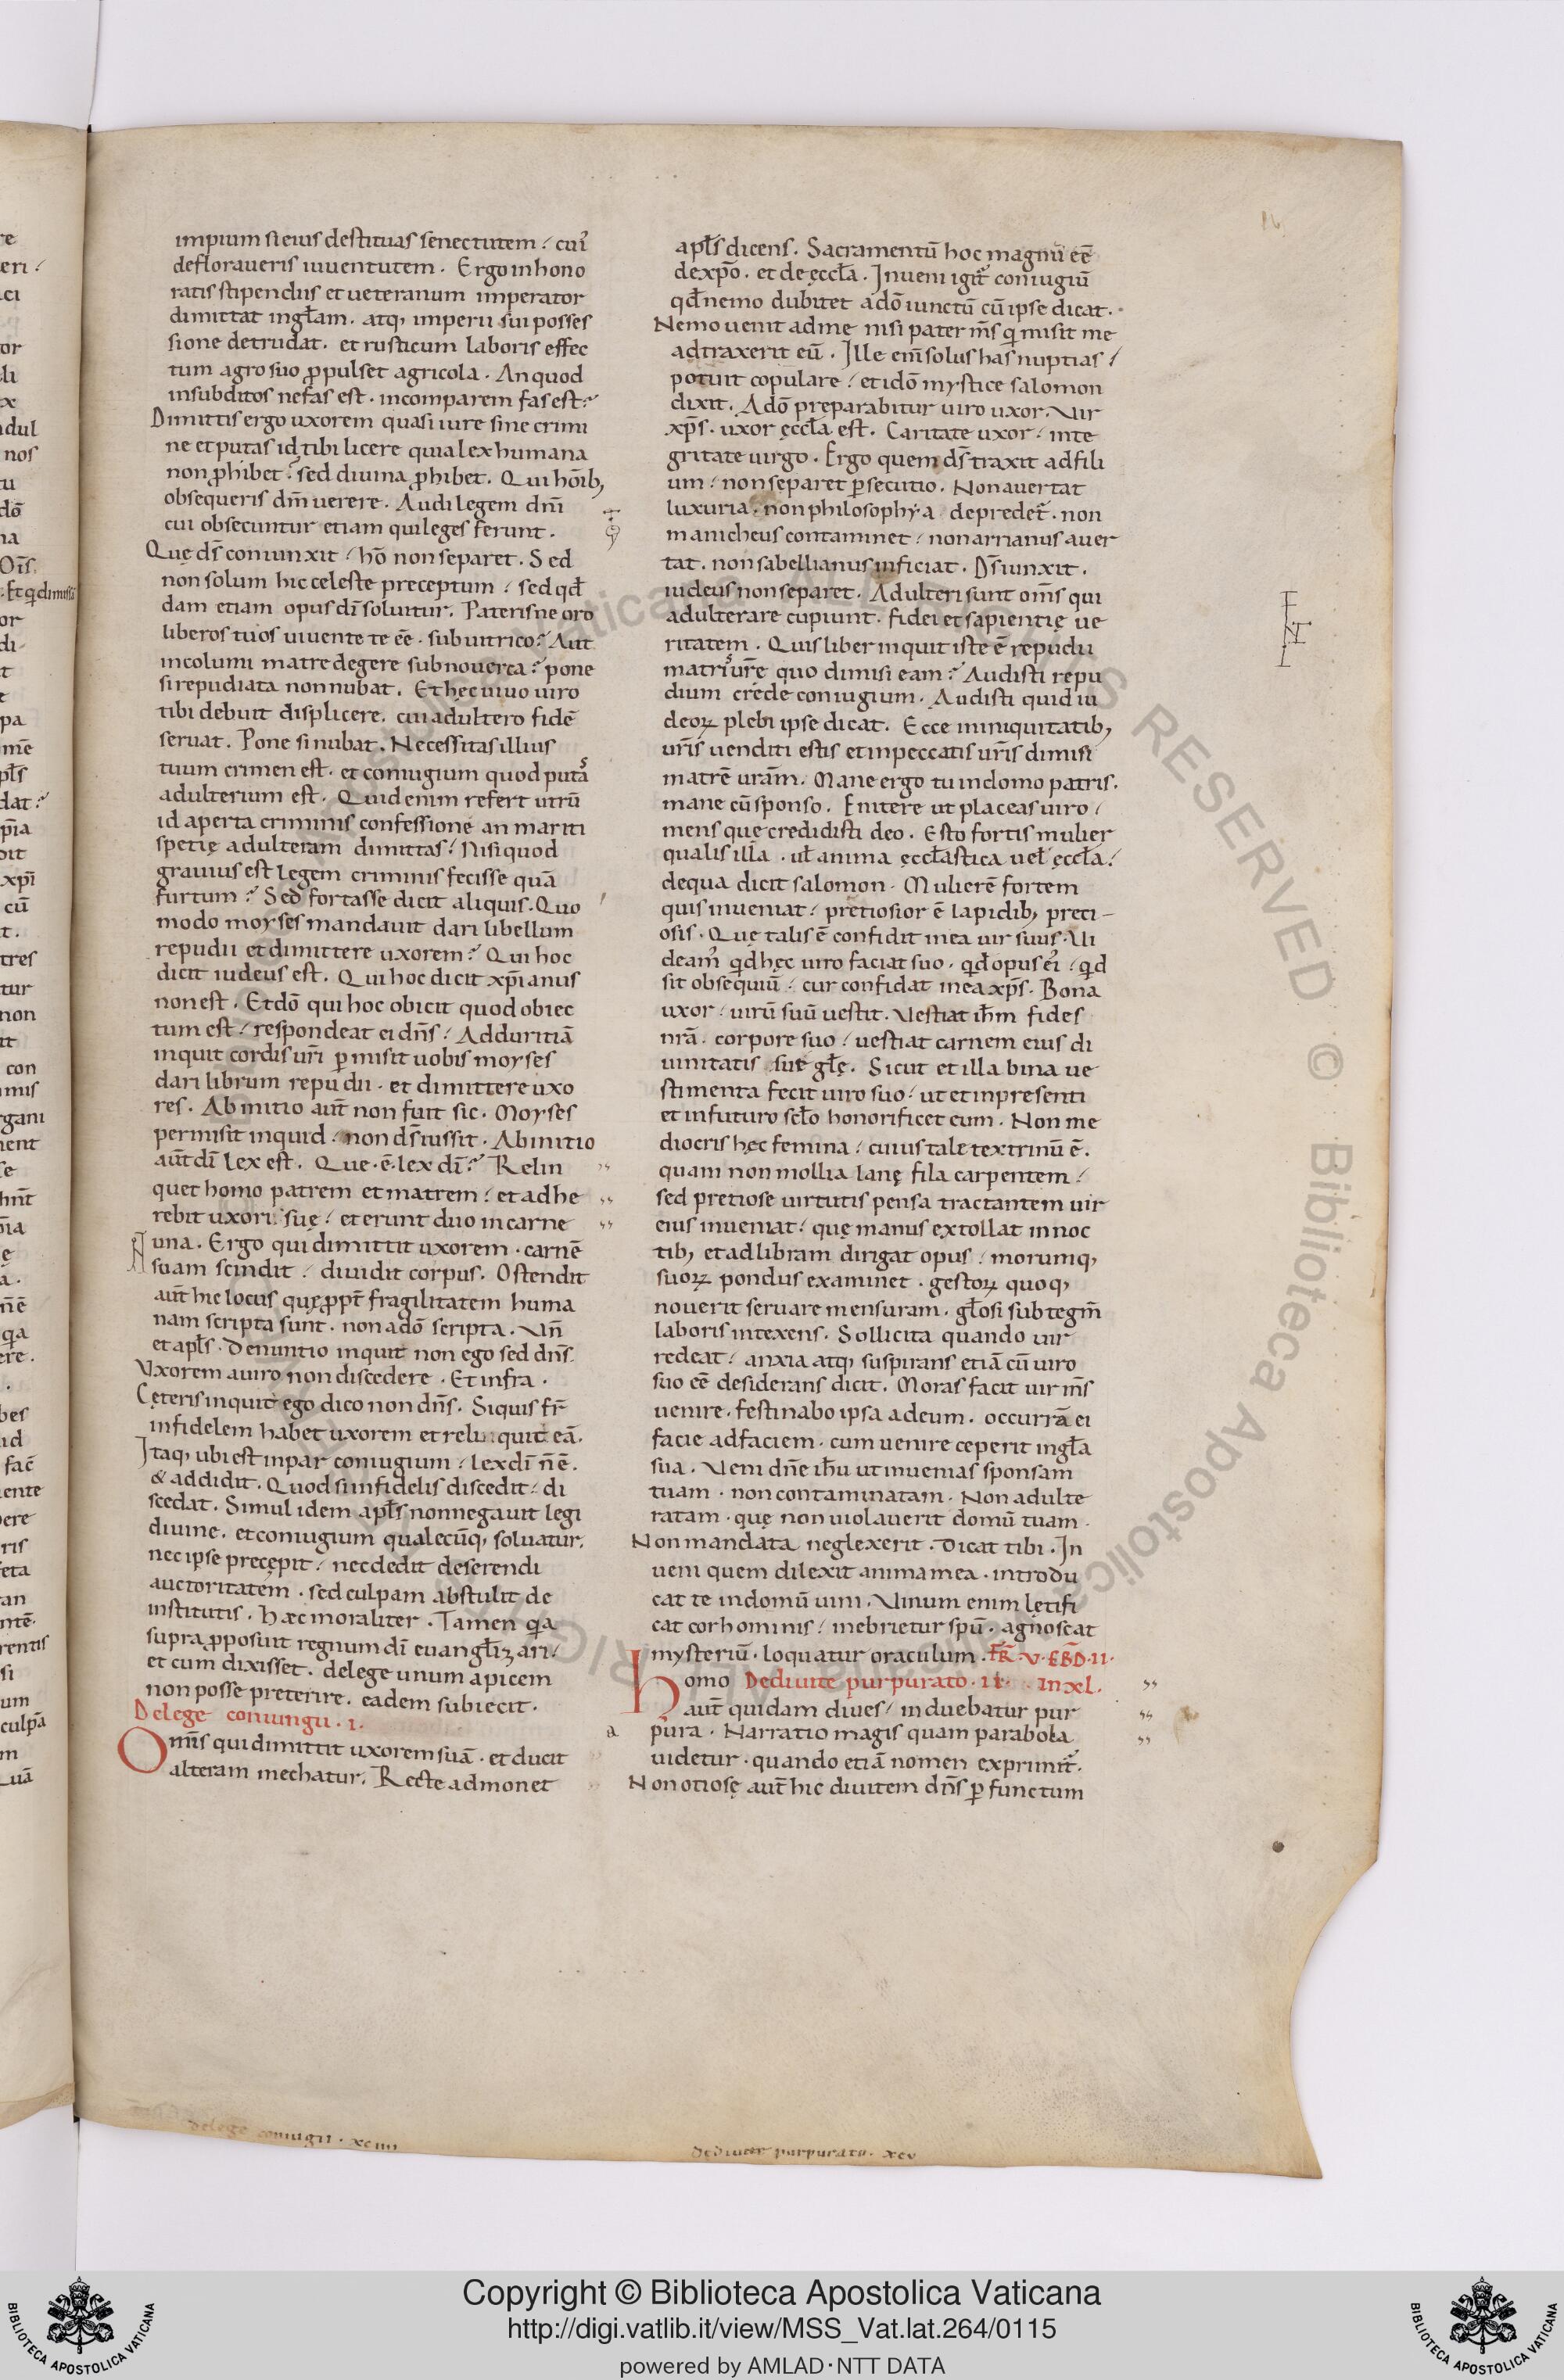 impium si eius destituas senectutem / cuiꝰ
defloraueris iuuentutem. Ergo inhono
ratis stipendiis et ueteranum imperator
dimittat ingl̄am. atq; imperii sui posses
sione detrudat. et rusticum laboris effec
tum agro suo ꝓpulset agricola. An quod
insubditos nefas est. incomparem fas est?
Dimittis ergo uxorem quasi iure sine crimi
ne et putas id tibi licere quia lex humana
non ꝓhibet? sed diuina ꝓhibet. Qui hoīb;
obsequeris dm̄ uerere. Audi legem dn̄i
cui obsecuntur etiam qui leges ferunt.
Quę ds̄ coniunxit / hō non separet. Sed
non solum hic celeste preceptum / sed qd̄
dam etiam opus dī soluitur. Paterisne oro
liberos tuos uiuente te eē. sub uitrico? Aut
incolumi matre degere sub nouerca? pone
si repudiata non nubat. Et hęc uiuo uiro
tibi debuit displicere. cui adultero fidē
seruat. Pone si nubat. Necessitas illius
tuum crimen est. et coniugium quod putaˢ
adulterium est. Quid enim refert utrū
id aperta criminis confessione an mariti
spetię adulteram dimittas? Nisi quod
grauius est legem criminis fecisse quā
furtum? Sed fortasse dicit aliquis. Quo
modo moyses mandauit dari libellum
repudii et dimittere uxorem? Qui hoc
dicit iudeus est. Qui hoc dicit xp̄ianus
non est. Et dō qui hoc obicit quod obiec
tum est / respondeat ei dn̄s / Ad duritiā
inquit cordis ur̄i ꝑmisit uobis moyses
dari librum repudii. et dimittere uxo
res. Ab initio aut̄ non fuit sic. Moyses
permisit inquid / non ds̄ iussit. Ab initio
aut̄ dī lex est. Que .ē. lex dī? Relin
quet homo patrem et matrem / et adhe
rebit uxori suę / et erunt duo in carne
una. Ergo qui dimittit uxorem. carnē
suam scindit / diuidit corpus. Ostendit
aut̄ hic locus quę ꝓpt̄ fragilitatem huma
nam scripta sunt. non a dō scripta. Vn̄
et apl̄s. Denuntio inquit non ego sed dn̄s
Vxorem a uiro non discedere. Et infra.
Cęteris inquit ego dico non dn̄s. Siquis fr̄
infidelem habet uxorem et relinquit eā.
Itaq; ubi est inpar coniugium / lex dī n̄ ē.
& addidit. Quod si infidelis discedit / di
scedat. Simul idem apl̄s non negauit legi
diuine. et coniugium qualecūq; soluatur.
nec ipse precępit / nec dedit deserendi
auctoritatem. sed culpam abstulit de
institutis. Hæc moraliter. Tamen q̄a
supra ꝓposuit regnum dī euangl̄izari /
et cum dixisset. delege unum apicem
non posse preterire. eadem subiecit.
Delege coniungii. I.
Omīs qui dimittit uxorem suā. et ducit
alteram mechatur. Recte admonet
apl̄s dicens. Sacramentū hoc magnū eē
de xp̄o. et de ęccl̄a. Inueni igit̄ coniugiū
qd̄ nemo dubitet a dō iunctū cū ipse dicat.
Nemo uenit ad me nisi pater ms̄ qi misit me
adtraxerit eū. Ille em̄ solus has nuptias /
potuit copulare / et idō mystice salomon
dixit. A dō preparabitur uiro uxor. Vir
xp̄s. uxor ęccl̄a est. Caritate uxor / inte
gritate uirgo. Ergo quem ds̄ traxit ad fili
um / non separet ꝑsecutio. Non auertat
luxuria. non philosophya depredet̄. non
manicheus contaminet / non arrianus auer
tat. non sabellianus inficiat. Ds̄ iunxit.
iudeus non separet. Adulteri sunt om̄s qui
adulterare cupiunt. fidei et sapientię ue
ritatem. Quis liber inquit iste ē repudii
matris̄ ur̄ę quo dimisi eam? Audisti repu
dium crede coniugium. Audisti quid iu
deoꝝ plebi ipse dicat. Ecce in iniquitatib;
ur̄is uenditi estis et in peccatis ur̄is dimisi
matrē uram̄. Mane ergo tu in domo patris.
mane cū sponso. Enitere ut placeas uiro /
mens quę credidisti deo. Esto fortis mulier
qualis illa. ul̄ anima ęccl̄astica uel ęccl̄a /
de qua dicit salomon. Mulierē fortem
quis inueniat / pretiosior ē lapidib; preti-
osis. Quę talis ē confidit in ea uir suus. Vi
deamꝰ qid hęc uiro faciat suo. qd̄ opus eiꝰ / qid
sit obsequiū / cur confidat in ea xp̄s. Bona
uxor / uirū suū uestit. Vestiat ih̄m fides
nr̄a. corpore suo / uestiat carnem eius di
uinitatis suę gl̄ę. Sicut et illa bina ue
stimenta fecit uiro suo / ut et inpresenti
et in futuro scl̄o honorificet eum. Non me
diocris hęc femina / cuius tale textrinū ē.
quam non mollia lanę fila carpentem /
sed pretiose uirtutis pensa tractantem uir
eius inueniat / quę manus extollat in noc
tib; et ad libram dirigat opus / morumq;
suoꝝ pondus examinet. gestoꝝ quoq;
nouerit seruare mensuram. gl̄osi subtegm̄
laboris intexens. Sollicita quando uir
redeat / anxia atq; suspirans etiā cū uiro
suo eē desiderans dicit. Moras facit uir ms̄
uenire. festinabo ipsa ad eum. occurrā ei
facie ad faciem. cum uenire ceperit in gl̄a
sua. Veni dn̄e ih̄u ut inuenias sponsam
tuam. non contaminatam. Non adulte
ratam. quę non uiolauerit domū tuam.
Non mandata neglexerit. Dicat tibi. In
ueni quem dilexit anima mea. introdu
cat te in domū uini. Vinum enim lętifi
cat cor hominis / inebrietur spū. agnoscat
mysteriū. loquatur oraculum. FR̄. V. EBD̄. II.
Homo Dediuite purpurato. II. In xl.
aut̄ quidam diues / induebatur pur
pura. Narratio magis quam parabola
uidetur. quando etiā nomen exprimit̄.
Non otiosę aut̄ hic diuitem dn̄s ꝑfunctum
delege coniugii. xciiii
dediuite purpurato. xcv
Copyright © Biblioteca Apostolica Vaticana
http://digi.vatlib.it/view/MSS_Vat.lat.264/0115
powered by AMLAD·NTT DATA
BIBLIOTECA APOSTOLICA VATICANA
BIBLIOTECA APOSTOLICA VATICANA